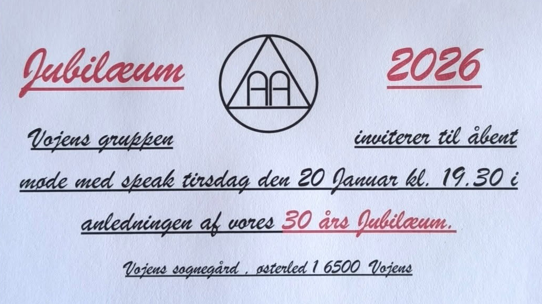 Jubilæum AA 2026
Vojens gruppen inviterer til åbent
møde med speak tirsdag den 20 Januar kl. 19.30 i
anledningen af vores 30 års Jubilæum.
Vojens sognegård , østerled 1 6500 Vojens